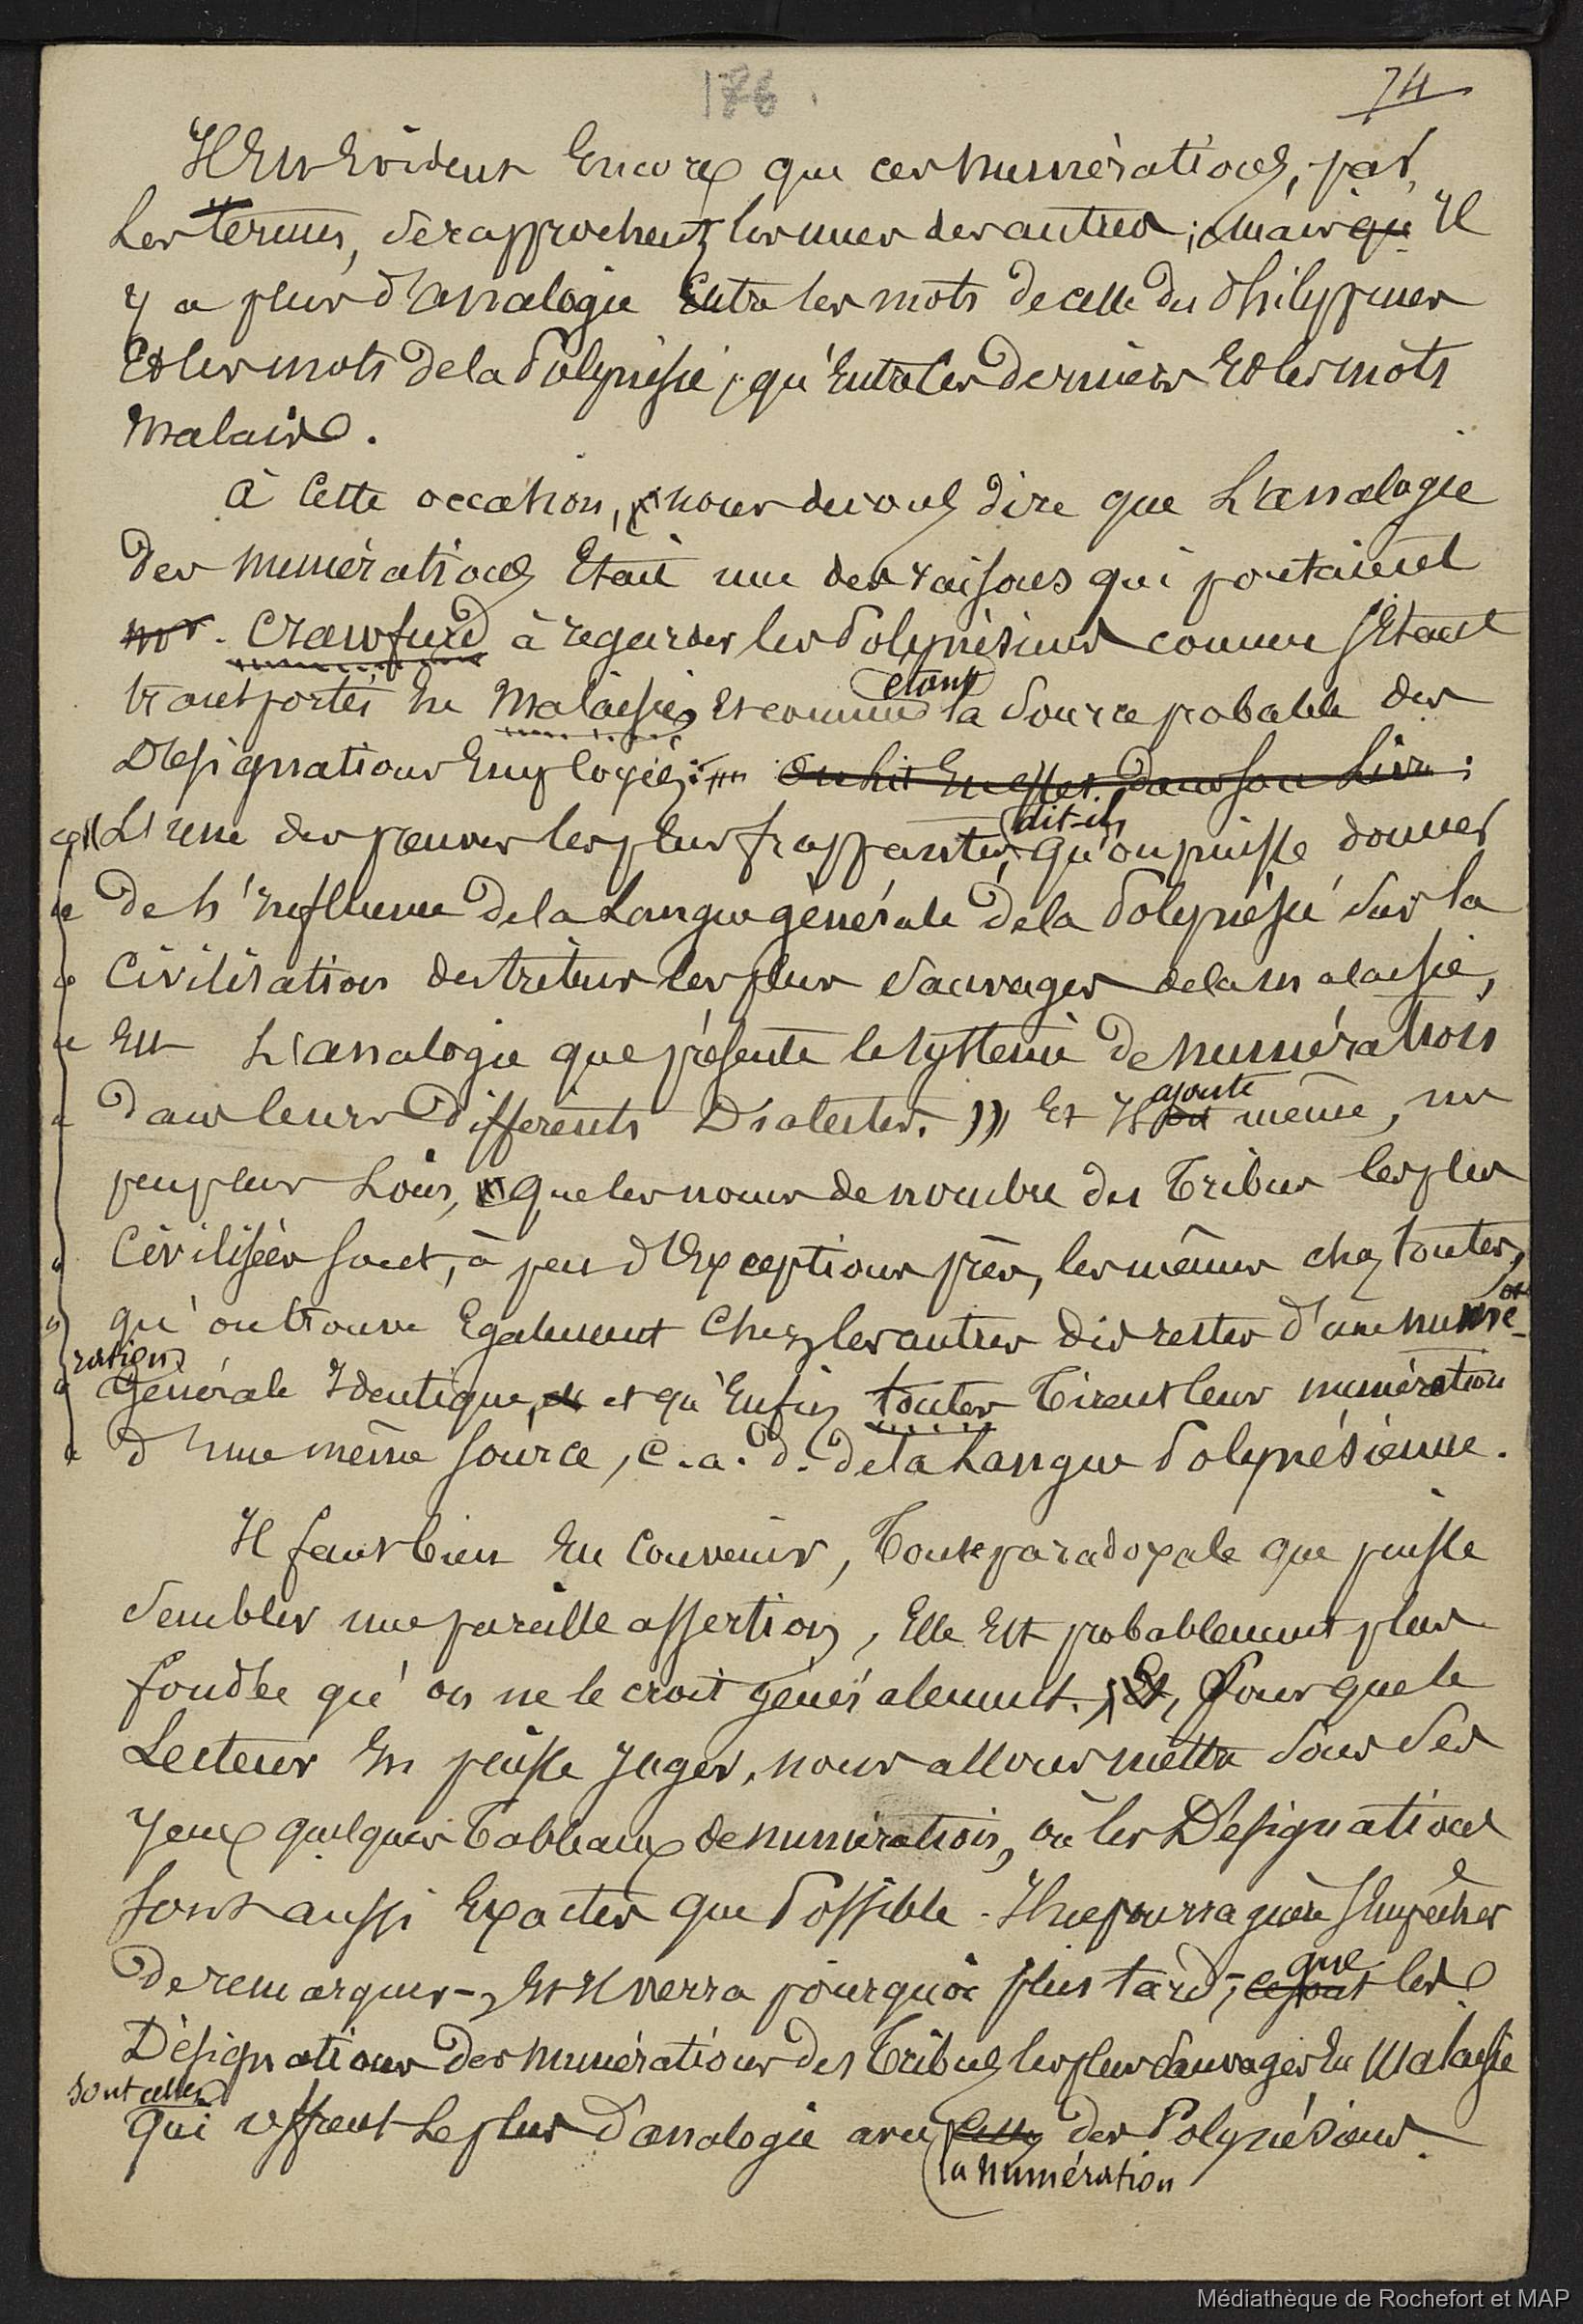 176
74
Il Est Evident Encore que ces numérations, par
Les termes, se rapprochent les unes des autres ; mais qu' Il
y a plus d'analogie Entre les mots de celle des Philippines
Et les mots de la Polynésie, qu'Entre les derniers Et les mots
malais.
à Cette occasion, nous devons dire que L'analogie
des numérations Etait une des raisons qui portaient
mr. Crawfurd à regarder les Polynésiens comme s'Etant
transportés En Malaisie, Et comme étant la Source probable des
Désignations Employées : On lit En effet dans son Livre :
« L'une des preuves les plus frappantes, dit-il, qu'on puisse donner
« de L'Influence de la Langue générale de la Polynésie sur la
« Civilisation des tribus les plus sauvages de la malaisie,
« Est L'analogie que présente le système de numération
« dans leurs différents Dialectes. » Et Il ajoute même, un
peu plus Loin, que les noms de nombre des Tribus les plus
« Civilisées sont, à peu d'Exceptions près, les mêmes chez toutes,
« qu'on trouve Egalement Chez les autres des restes d'une numé-
ration
« Générale Identique, et qu'Enfin toutes Tirent leur numération
« d'une même source, c.a.d. de la Langue Polynésienne.
Il faut bien En Convenir, Toute paradoxale que puisse
sembler une pareille assertion, Elle Est probablement plus
fondée qu'on ne le croit généralement. Et, Pour que le
Lecteur En puisse Juger, nous allons mettre sous ses
yeux quelques Tableaux de numération, où les Désignations
sont aussi Exactes que Possible. Il ne pourra guère s'Empêcher
de remarquer -, Et Il verra pourquoi plus tard -, ce sont que les
Désignations des numérations des Tribus les plus sauvages En Malaisie
sont celles
qui offrent Le plus d'analogie avec celles des Polynésiens.
la numération
Médiathèque de Rochefort et MAP